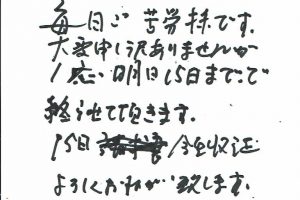 毎日ご苦労様です.
大変申し訳ありませんが
1応 明日15日までで
終らせて頂きます.
15日 全
よろしくおねがい致します.